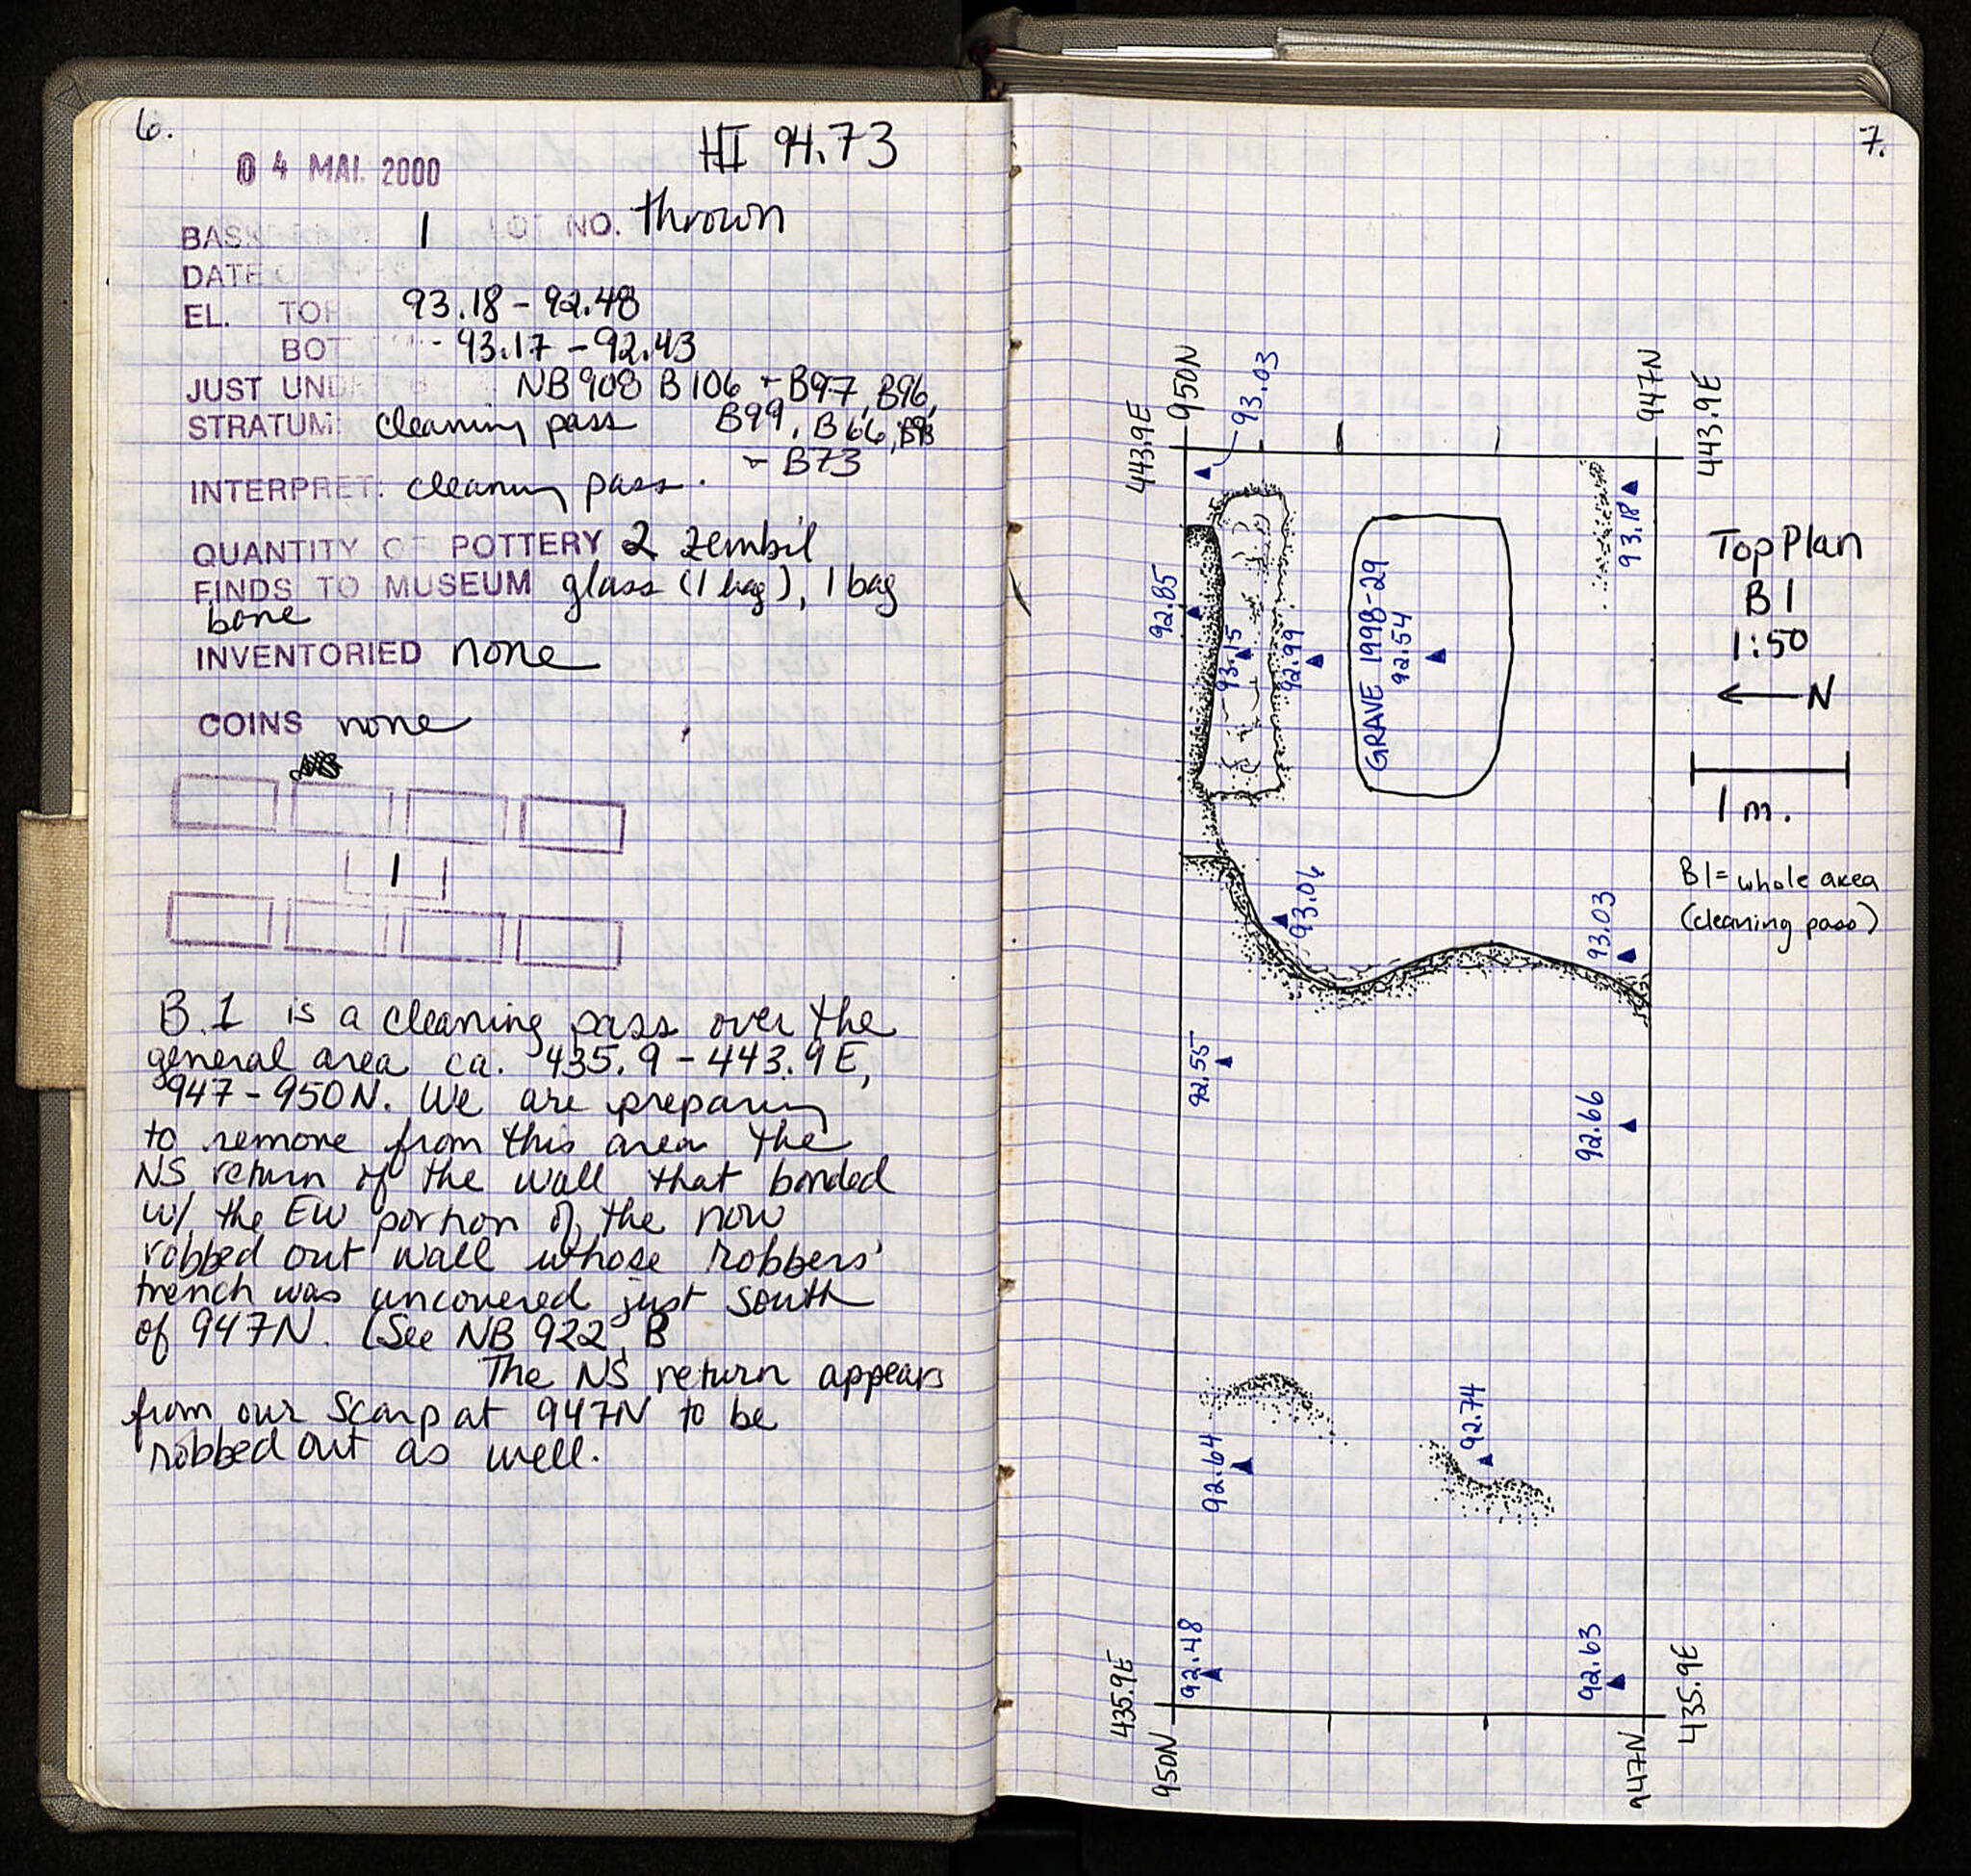 6.
HI 94.73
04 MAI. 2000
BASK 1 LOT NO. thrown
DATE
EL. TOP 93.18 - 92.48
BOT - 93.17 - 92.43
JUST UND NB 908 B106 + B97, B96,
STRATUM: cleaning pass B99, B66, B98
+ B73
INTERPRET: cleaning pass.
QUANTITY OF POTTERY 2 zembil
FINDS TO MUSEUM glass (1 bag), 1 bag
bone
INVENTORIED none
COINS none
1
B.1 is a cleaning pass over the
general area ca. 435.9 - 443.9 E,
947 - 950N. We are preparing
to remove from this area the
NS return of the wall that bonded
w/ the EW portion of the now
robbed out wall whose robbers'
trench was uncovered just south
of 947N. (See NB 922, B
The NS return appears
from our scarp at 947N to be
robbed out as well.
7.
443.9E
950N
93.03
947N
443.9E
93.18
92.85
93.15
92.99
GRAVE 1998-29
92.54
Top Plan
B1
1:50
N
1 m.
B1 = whole area
(cleaning pass)
93.06
93.03
92.55
92.66
92.64
92.74
92.48
92.63
435.9E
950N
947N
435.9E